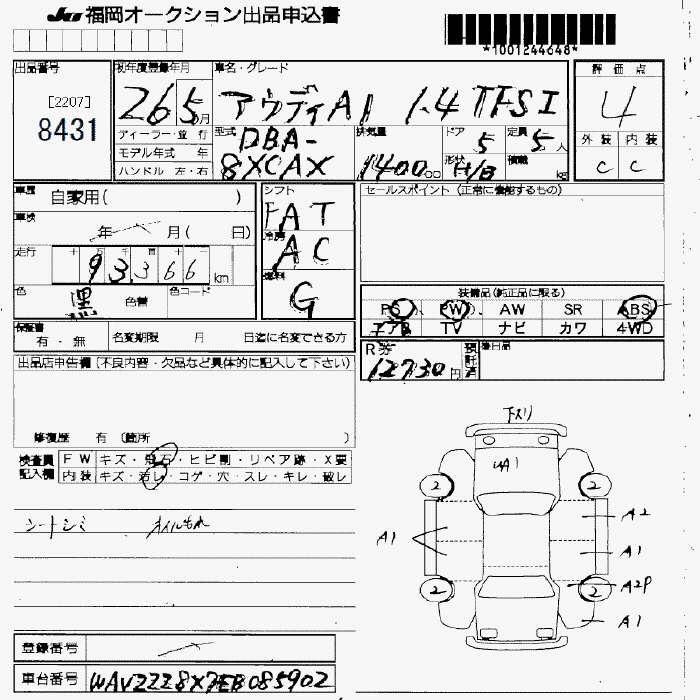 JU 福岡オークション出品申込書
*1001244648*
出品番号 初年度登録年月 車名・グレード 評価点
[2207]
8431
26 5月 アウディA1 1.4 TFSI 4
ディーラー・並行 型式 排気量 ドア 定員 外装 内装
モデル年式 年 DBA- 5 5人
ハンドル 左・右 8XCAX 1400 cc 形状 H/B 積載 kg C C
車歴 自家用( ) シフト FAT セールスポイント(正常に機能するもの)
車検 年 月( 日) 冷房 AC
走行 十 万 千 百 十 93366 km 燃料 G
色 色替 色コード
装備品(純正品に限る)
PS PW AW SR ABS
エアB TV ナビ カワ 4WD
保証書 有・無 名変期限 月 日迄に名変できる方
R券 12730円 預託済 後日品
出品店申告欄(不良内容・欠品など具体的に記入して下さい)
修復歴 有 (箇所 )
検査員記入欄 FW キズ・飛石・ヒビ割・リペア跡・X要
内装 キズ・汚レ・コゲ・穴・スレ・キレ・破レ
シートシミ オイルもれ
下スリ
A1
2 2
A1 A2
A1
2 2 A2P
A1
登録番号
車台番号 WAVZZZ8X7EB085902